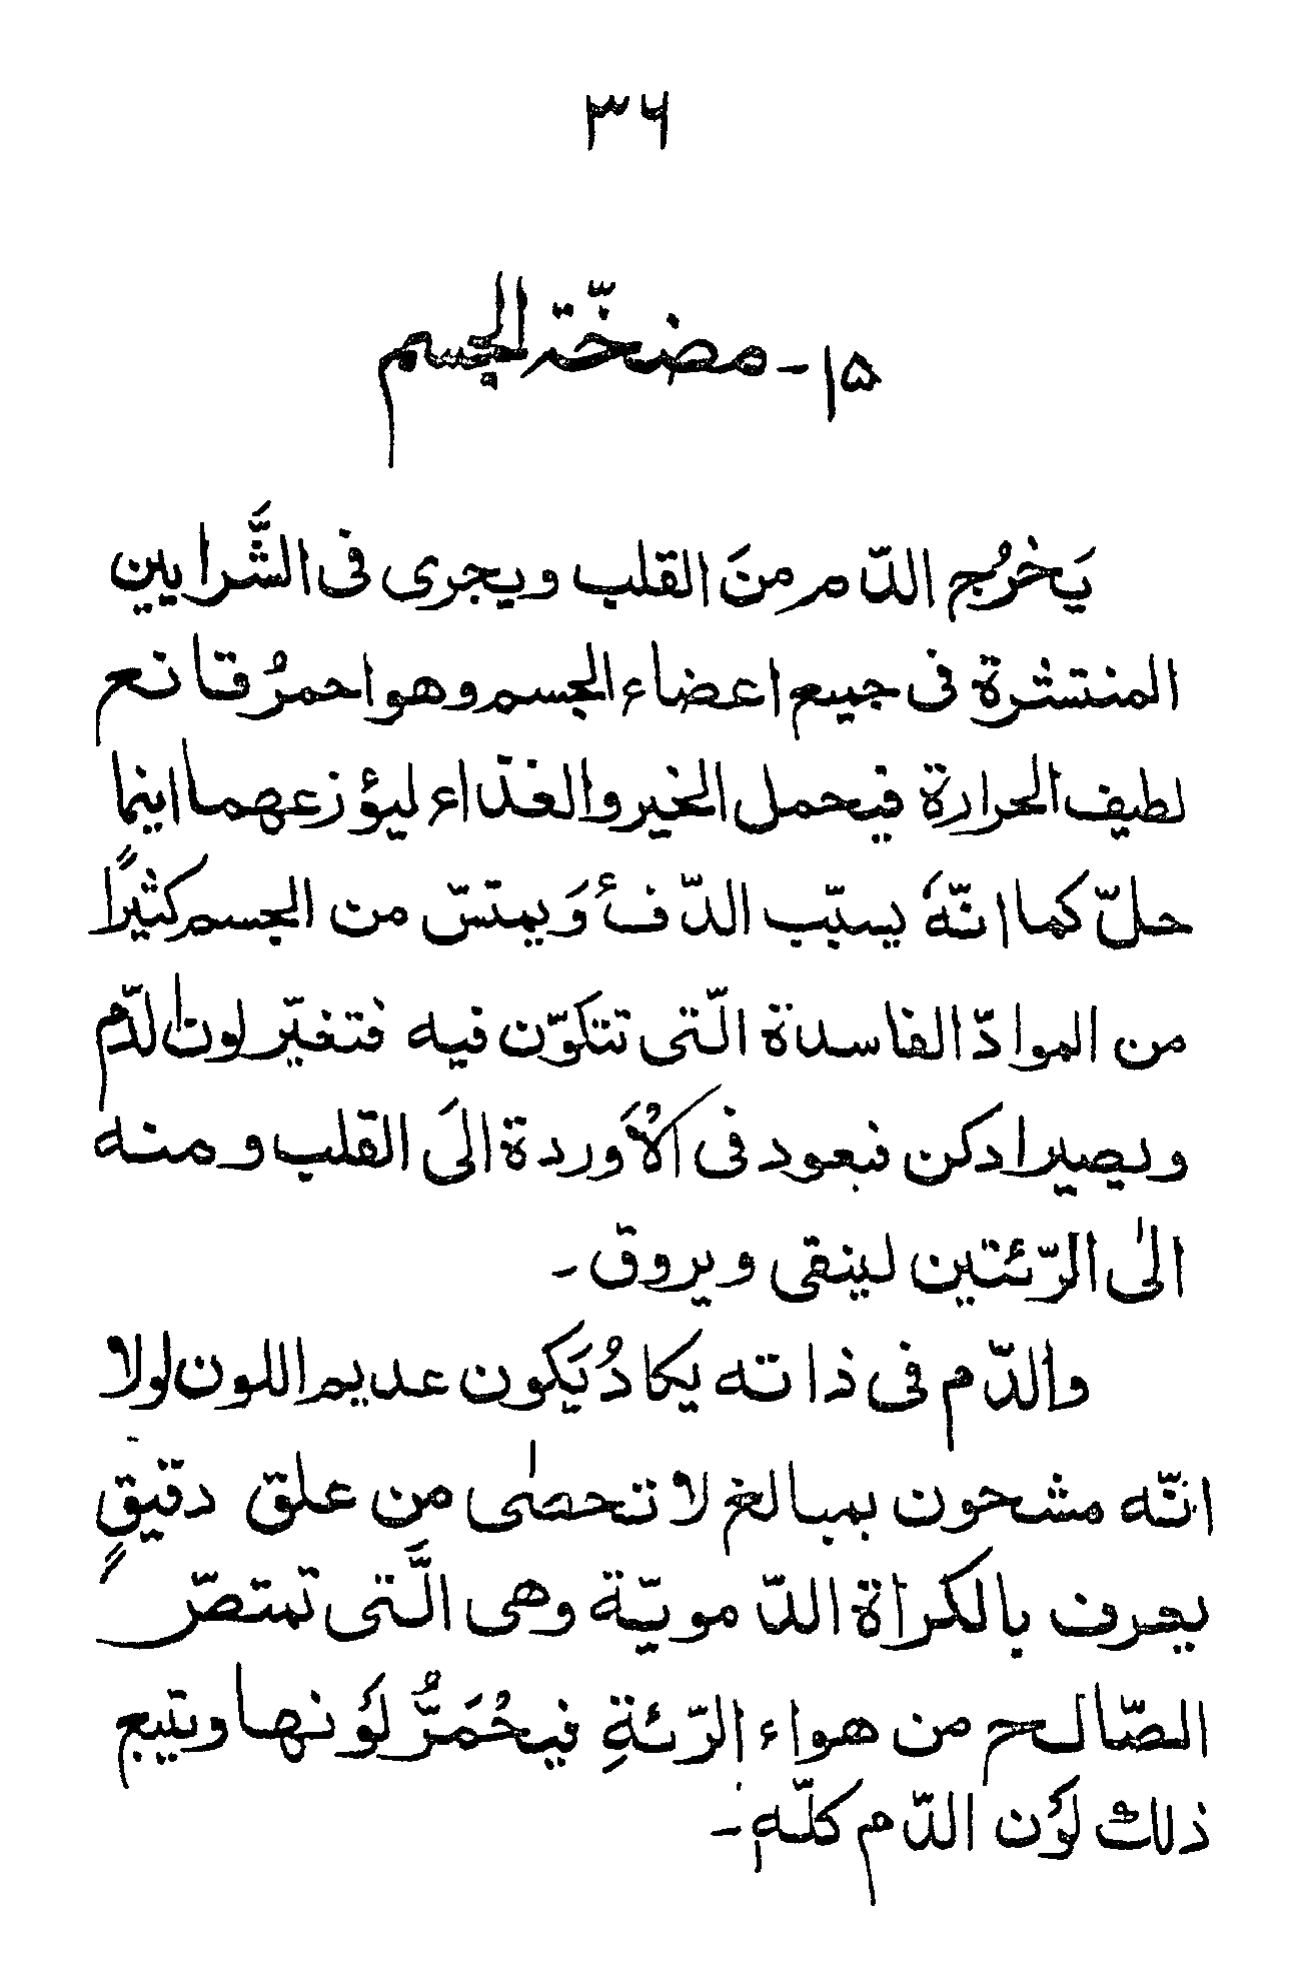 ٣٦
١٥ - مضخّة الجسم
يَخْرُج الدّم منَ القلب ويجرى فى الشَّرايين
المنتشرة فى جميع اعضاء الجسم وهو احمرُ قانع
لطيف الحرارة فيحمل الخير والغذاء ليؤزعهما اينما
حلّ كما انّهٗ يسبّب الدّفٔ وَيمتسّ من الجسم كثيرًا
من الموادّ الفاسدة الّتى تتكوّن فيه فتغيّر لون الدّم
ويصير ادكن فبعود فى الاُوَردة الىَ القلب ومنه
الىٰ الرّئتين لينقى ويروق -
والدّم فى ذاته يكادُ يَكون عديم اللون لولا
انّه مشحون بمبالغ لا تحصىٰ من علق دقيقٍ
يعرف بالكراة الدّمويّة وهى الَّتى تمتصّر
الصّالح من هواء الرّئةِ فيحْمَرُّ لوَنها ويتبع
ذلك لوَن الدّم كلّهٖ -